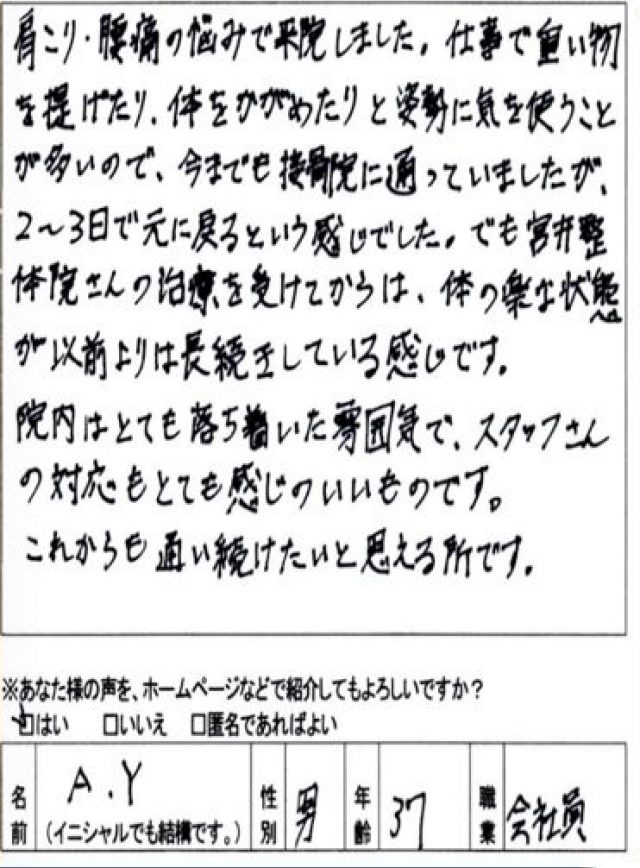 肩こり・腰痛の悩みで来院しました。仕事で重い物
を提げたり、体をかがめたりと姿勢に気を使うこと
が多いので、今までも接骨院に通っていましたが、
2～3日で元に戻るという感じでした。でも宮井整
体院さんの治療を受けてからは、体の楽な状態
が以前よりは長続きしている感じです。
院内はとても落ち着いた雰囲気で、スタッフさん
の対応もとても感じのいいものです。
これからも通い続けたいと思える所です。
※あなた様の声を、ホームページなどで紹介してもよろしいですか？
☑はい □いいえ □匿名であればよい
名前 A.Y (イニシャルでも結構です。) 性別 男 年齢 37 職業 会社員